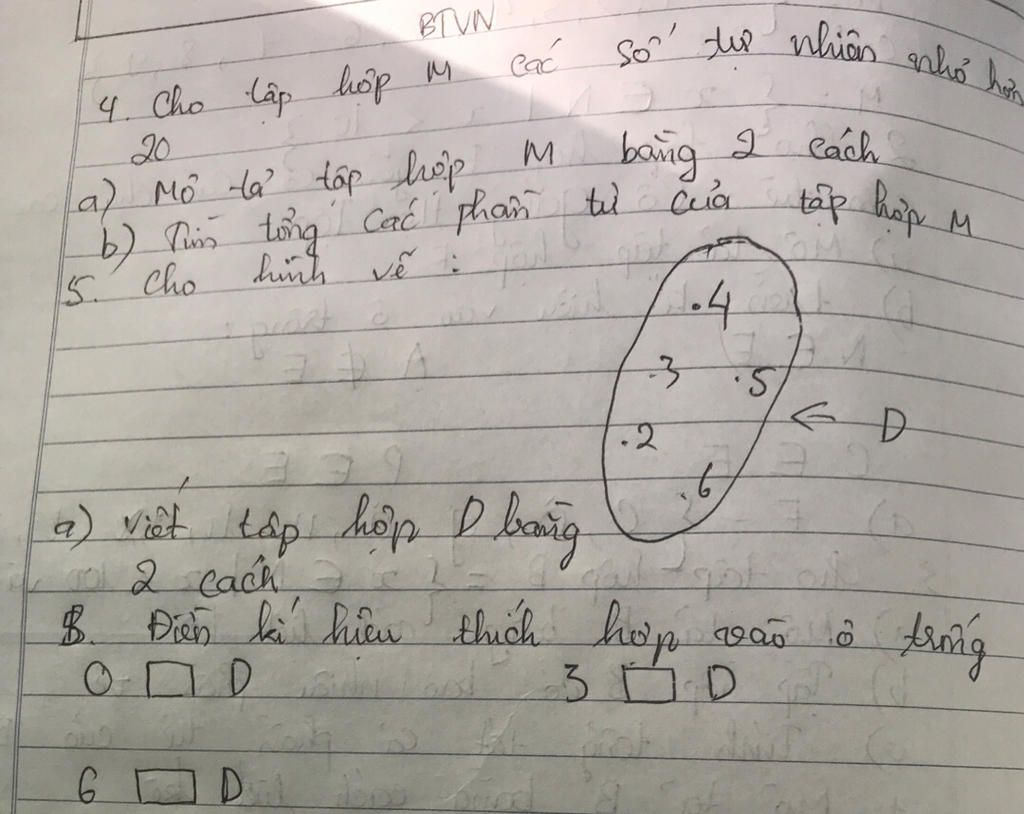 BTVN
4. Cho tập hợp M các số tự nhiên nhỏ hơn
20
a) Mô tả tập hợp M bằng 2 cách
b) Tìm tổng các phần tử của tập hợp M
5. Cho hình vẽ :
.4
.3 .5
.2 ← D
.6
a) Viết tập hợp D bằng
2 cách
B. Điền kí hiệu thích hợp vào ô trống
0 □ D 3 □ D
6 □ D